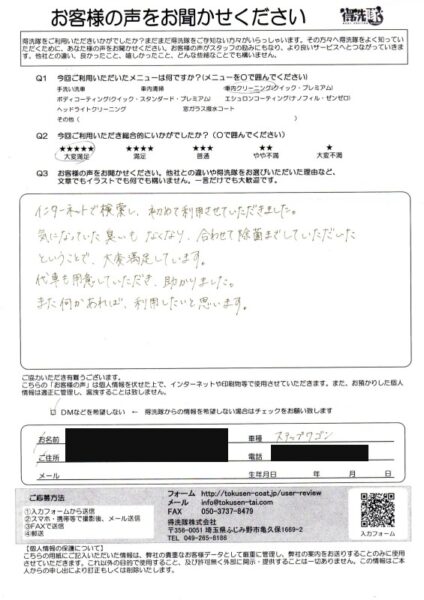 お客様の声をお聞かせください
得洗隊
得洗隊をご利用いただきいかがでしたか?まだまだ得洗隊をご存知ない方々がいらっしゃいます。その方々へ得洗隊をよく知っていただくために、あなた様の声をお聞かせください。お客様の声がスタッフの励みにもなり、より良いサービスへとつながっていきます。他社との違い、良かったこと、嬉しかったこと、どんな些細なことでもかまいません。
Q1 今回ご利用いただいたメニューは何ですか?(メニューを○で囲んでください)
手洗い洗車 車内清掃 車内クリーニング(クイック・プレミアム)
ボディコーティング(クイック・スタンダード・プレミアム) エシュロンコーティング(ナノフィル・ゼンゼロ)
ヘッドライトクリーニング 窓ガラス撥水コート
その他( )
Q2 今回ご利用いただき総合的にいかがでしたか?(○で囲んでください)
★★★★★ ★★★★ ★★★ ★★ ★
大変満足 満足 普通 やや不満 大変不満
Q3 お客様の声をお聞かせください。他社との違いや得洗隊をお選びいただいた理由など、
文章でもイラストでも何でも構いません。一言だけでも大歓迎です。
インターネットで検索し、初めて利用させていただきました。
気になっていた臭いもなくなり、合わせて除菌までしていただいた
ということで、大変満足しています。
代車も用意していただき、助かりました。
また何かあれば、利用したいと思います。
ご協力いただき有難うございます。
こちらの「お客様の声」は個人情報を伏せた上で、インターネットや印刷物等で使用させていただきます。また、お預かりした個人情報は適正に管理し、漏洩することは致しません。
DMなどを希望しない ← 得洗隊からの情報を希望しない場合はチェックをお願い致します
お名前 車種 ステップワゴン
ご住所 電話
メール 生年月日 年 月 日
ご応募方法
①入力フォームから送信
②スマホ・携帯等で撮影後、メール送信
③FAXで送信
④郵送
フォーム http://tokusen-coat.jp/user-review
メール info@tokusen-tai.com
FAX 050-3737-8479
得洗隊株式会社
〒356-0051 埼玉県ふじみ野市亀久保1669-2
TEL 049-265-8186
入力フォーム
【個人情報の保護について】
こちらの用紙にご記入いただいた情報は、弊社の貴重なお客様データとして厳重に管理し、弊社の案内をお送りすることのみに使用させていただきます。これ以外の目的で使用すること、及び許可無く外部に開示・提供することは一切ありません。この情報はご本人からの申し出により訂正もしくは削除いたします。